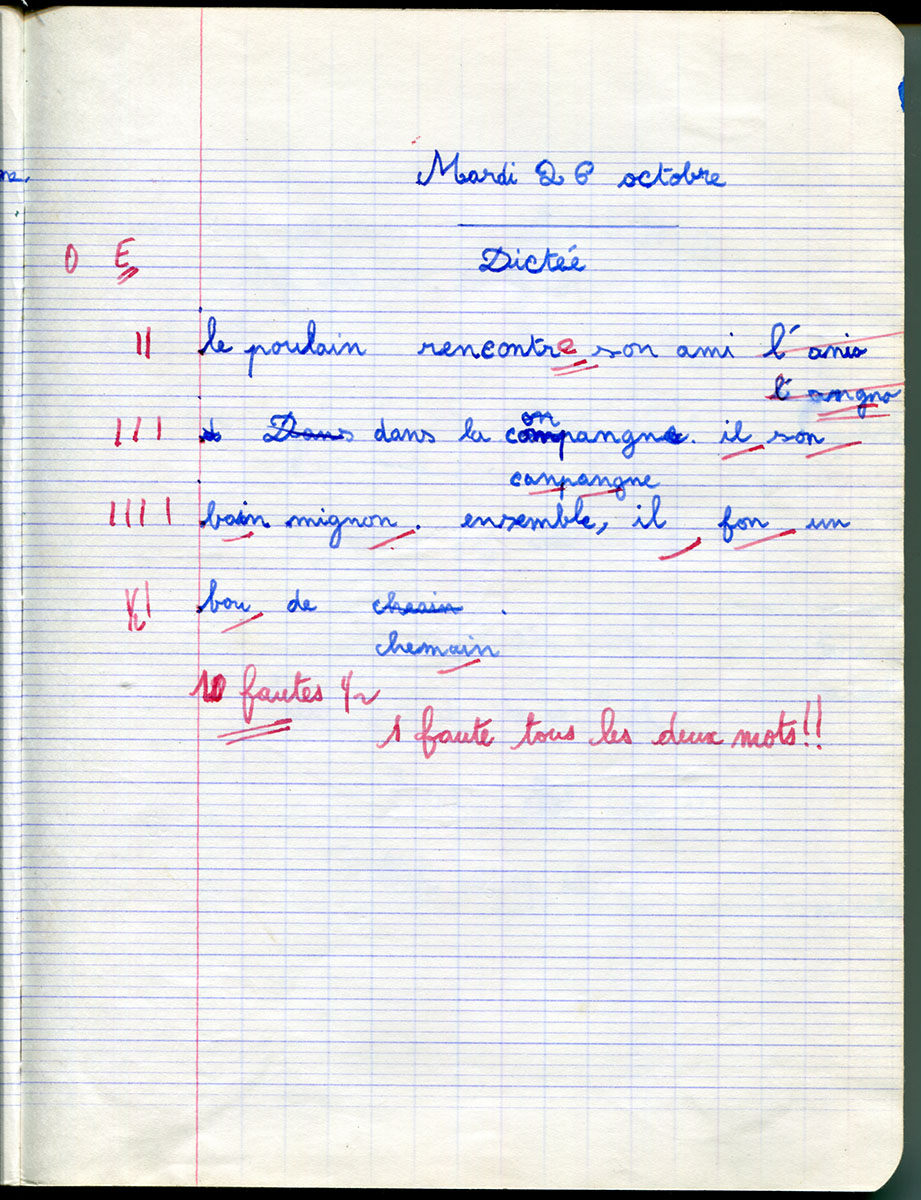 Mardi 26 octobre
Dictéé
0 E
le poulain rencontre son ami l'
l'angno
dans la compangne. il son
on
canpangne
bain mignon. ensemble, il fon un
bou de
chemain
10 fautes ½
1 faute tous les deux mots!!